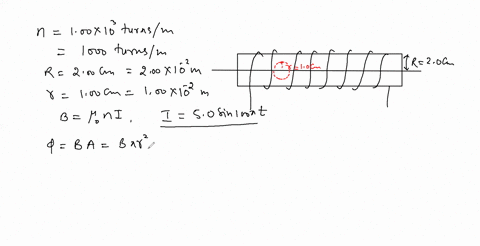 n = 1.00×10³ turns/m
= 1000 turns/m
R = 2.00 Cm = 2.00×10⁻² m
r = 1.00 Cm = 1.00×10⁻² m
B = μ₀ n I , I = 5.0 Sin 100π t
ϕ = B A = B πr²
r=1.0Cm
R=2.0Cm